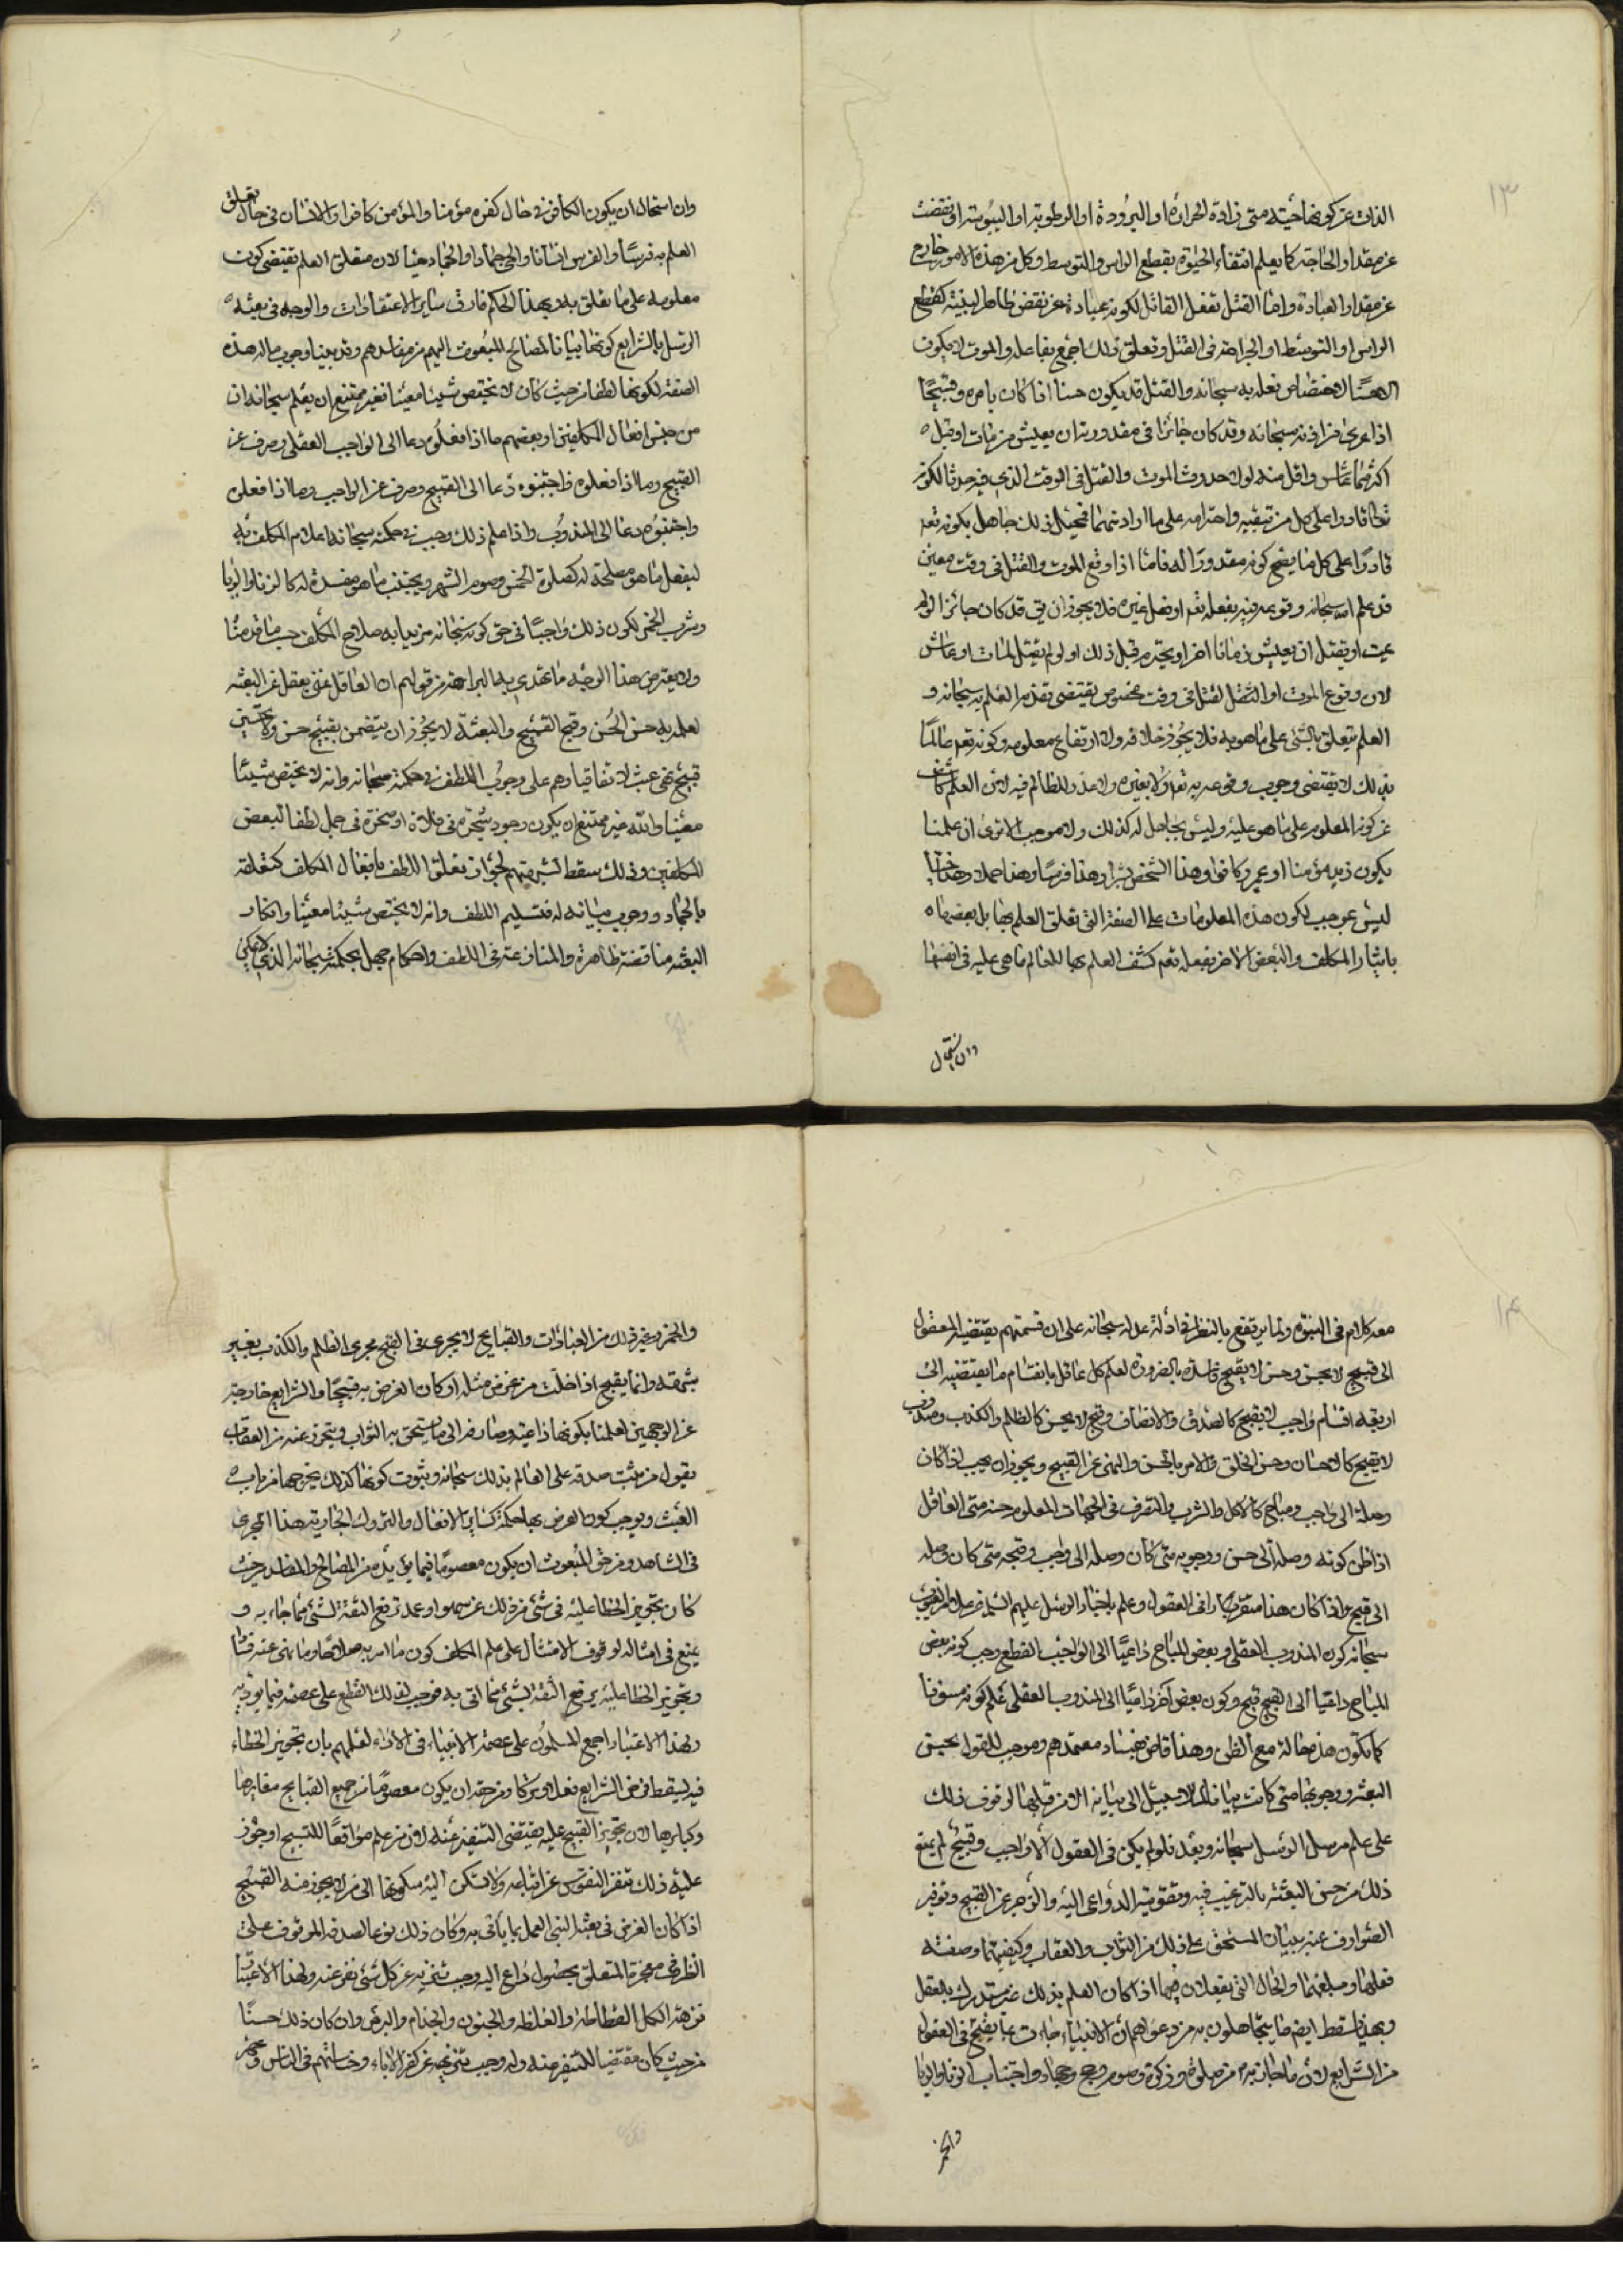 ١٣
الذات عن كونها حيّة متى زادة الحرارة او البرودة او الرطوبة او اليبوسة او نقصت
عن مقدار الحاجة كما يعلم انتفاء الحيوة بقطع الراس والتوسط وكل من هذه الامور خارج
عن مقدار العباد واما القتل بفعل القاتل لكونه عبارة عن نقض ظاهر البنية كقطع
الراس او التوسط او الجراحة فى القتل وتعلق ذلك اجمع بفاعله والموت لا يكون
الا حسنًا لاختصاص فعله به سبحانه والقتل قد يكون حسنا اذا كان بامره وقبيحًا
اذا عرى من اذنه سبحانه وقد كان جائزا فى مقدوره ان يعيش من مات او قتل
اكثر مما عاش واقل منه لولا حدوث الموت والقتل فى الوقت الذى فيه حدثا لكونه
تعا قادرا على كل من تبقيه واخترامه على ما اراد منهما فتحيل ذلك جاهل بكونه تعه
قادرًا على كل ما يصح كونه مقدورًا له فامّا اذا وقع الموت والقتل فى وقت معين
قد علم الله سبحانه وقوعه فيه بفعله تعه او فعل غيره فلا يجوز ان يقى قد كان جائز الو لم
يمت او يقتل ان يعيش زمانا اخر او يخترم قبل ذلك او لو لم يقتل لمات او عاش
لان وقوع الموت او القتل لقتل فى وقت مخصوص يقتضى تقدم العلم به سبحانه و
العلم يتعلق بالشئ على ما هو به فلا يجوز خلافه ولا ارتفاع معلومه وكونه تعه عالمًا
بذلك لا يقتضى وجوب وقوعه به تعه ولا بغيره ولا عذر للظالم فيه لان العلم كاشف
عن كون المعلوم على ما هو عليه وليس بجاعل له كذلك ولا موجب الا ترى ان علمنا
بكون زيد مؤمنا او عمرو كافرا وهذا الشخص بشرا وهذا فرسًا وهذا جملا وهذا حيًا
ليس بموجب لكون هذه المعلومات على الصفة التى تعلق العلم بها بل بعضها
بايثار المكلف والبعض الاخر بفعله تعه كشف العلم بها للعالم ما هى عليه فى انفسها
وان استحال
وان استحال ان يكون الكافر فى حال كفره مؤمنا والمؤمن كافرا والانسان فى حال تعلق
العلم به فرسًا والفرس انسانا والحى جمادا والجماد حيًا لان متعلق العلم يقتضى كون
معلومه على ما تعلق به لا بهذا الحكم فارق ساير الاعتقادات والوجه فى بعثه
الرسل بالشرايع كونها بيانا لمصالح المبعوث اليهم من مفاسدهم وقد بينا وجوب ما له هذه
الصفة لكونها لطفا من حيث كان لا يختص شيئا معينا فغير ممتنع ان يعلم سبحانه ان
من جنس افعال المكلفين او بعضهم ما اذا فعلوه دعا الى الواجب العقلى وصرف عن
القبيح وما اذا فعلوه فاجتنبوه دعا الى القبيح وصرف عن الواجب وما اذا فعلوه
واجتنبوه دعا الى المندوب واذا علم ذلك وجب فى حكمته سبحانه اعلام المكلف به
ليفعل ما هو مصلحة له كصلوة الخمس وصوم الشهر ويجتنب ما هو مفسدة له كالزنا والربا
وشرب الخمر لكون ذلك واجبًا فى حق كونه سبحانه مزيدا به صلاح المكلف حسب ما قدمنا
ولا يعترض هذا الوجه ما تهذى به البراهمة من قولهم ان العاقل غنى بعقله عن البعثه
لعلمه به حسن الحُسن وقبح القبيح والبعثة لا يجوز ان يتضمن بقبيح حسن ولا بحسين
قبيح فهى عبث لاتفاقنا وهم على وجوب اللطف فى حكمته سبحانه وانه لا يختص شيئًا
معينا وانه غير ممتنع ان يكون وجود شجرة فى فلاة او صخرة فى جبل لطفا لبعض
المكلفين وذلك سقط لشبهتهم لجواز تعلق اللطف بافعال المكلف كتعلقه
بالجماد ووجوب بيانه له فتسليم اللطف وانه لا يختص شيئا معينا وانكار
البعثه مناقضة ظاهرة والمنازعة فى اللطف واحكام جهل بحكمته سبحانه الذى لا يمكن
١٤
معه كلام فى النبوة وانما يرتفع بالنظر فى ادلة عدله سبحانه على ان قسمتهم يقتضيه المعقول
الى قبيح لا يحسن وحسن لا يقبح فاسدة بالضرورة لعلم كل عاقل بانقسام ما يقتضيه الى
اربعة اقسام واجب لا يقبح كالصدق والانصاف وقبح لا يحسن كالظلم والكذب ومندوب
لا يقبح كالاحسان وحسن الخلق والامر بالحسن والنهى عن القبيح ويجوز ان يجب اذا كان
وصلة الى واجب ومباح كالاكل والشرب والتصرف فى الجهات المعلوم حسنه متى العاقل
اذا ظن كونه وصلة الى حسن ووجوبه متى كان وصله الى واجب وقبحه متى كان وصله
الى قبيح واذا كان هذا متقررًا فى العقول وعلم باخبار الرسل عليهم السلام عن علام الغيوب
سبحانه كون المندوب العقلى وبعض المباح داعيًا الى الواجب القطع وجب كونه بعض
المباح داعيًا الى القبيح قبيح وكون بعض آخر داعيًا الى المندوب العقلى علم كونه مسنونا
كما يكون هذه حاله مع الظن وهذا قاض بفساد معتمدهم وموجب للقول بحسن
البعثة ووجوبها متى كانت بيانا لما لا سبيل الى بيانه الا من قبلها لوقوف ذلك
على علم مرسل الرسل سبحانه وبعد فلو لم يكن فى العقول الا واجب وقبيح لم يمنع
ذلك من حسن البعثة بالترغيب فيه وتقوية الدواعى اليه والزجر عن القبيح وتوفير
الصوارف عنه ببيان المستحق على ذلك من الثواب والعقاب وكيفيتهما وصفته
فعلهما ومبلغهما والحال التى يفعلان فيها اذا كان العلم بذلك غير مستدرك بالعقل
وبهذا سقط ايضم ما يتجاهلون به من دعواهم ان الانبياء جاءت بما يقبح فى العقول
من الشرايع لان ما جاؤا به من صلوة وزكوة وصوم وحج وجهاد واجتناب الزنا والربا
والخمر
والخمر وغير ذلك من العبادات والقبايح لا يجرى فى القبح مجرى الظلم والكذب بغير
شرقه وانما يقبح اذا خلت من غرض مثله او كان الغرض به قبيحًا والشرايع خارجة
عن الوجهين لعلمنا بكونها داعية وصارفه الى ما يستحق به الثواب ويتحرز عنه من العقاب
بقول من ثبت صدقه على العالم بذلك سبحانه وثبوت كونها كذلك يخرجها من باب
العبث ويوجب كون الغرض بها حكمة كساير الافعال والتروك الجارية هذا المجرى
فى الشاهد ومن حق المبعوث ان يكون معصومًا فيما يؤديه من المصالح والمفاسد من حيث
كان تجويز الخطا عليه فى شئ من ذلك عن سهو او عمد ترفع الثقة لشئ مما جاء به و
يمنع فى امثاله لوقوف الامتثال على علم المكلف كون ما امر به صلاحًا وما نهى عنه فسادًا
وتجويز الخطا عليه يرفع الثقة بشئ مما اتى به فوجب لذلك القطع على عصمته فيما يؤديه
ولهذا الاعتبار اجمع المسلمون على عصمة الانبياء فى الاداء لعلمهم بان تجويز الخطاء
فيه يسقط فرض الشرايع فعلا وتركا ومن حقه ان يكون معصومًا من جميع القبايح صغايرها
وكبايرها لان تجويز القبيح عليه يقتضى التنفير عنه لان من علم مواقعًا للقبيح او جوز
عليه ذلك تنفر النفوس عن اتباعه ولا تسكن اليه سكونها الى من لا يجوز منه القبيح
اذا كان الغرض فى بعثة النبى العمل بما يأتى به وكان ذلك نوعا لصدقه الموقوف على
النظر فى معجزه المتعلق بحصول داع اليه وجب تنزيه عن كل شئ نفر عنه ولهذا الاعتبار
نزهه الكل الفظاظه والغلظه والجنون والجذام والبرص وان كان ذلك حسنًا
من حيث كان مقتضيا للتنفير منه وله وجب تنزيهه عن كفر الآباء وخساستهم فى الناس و